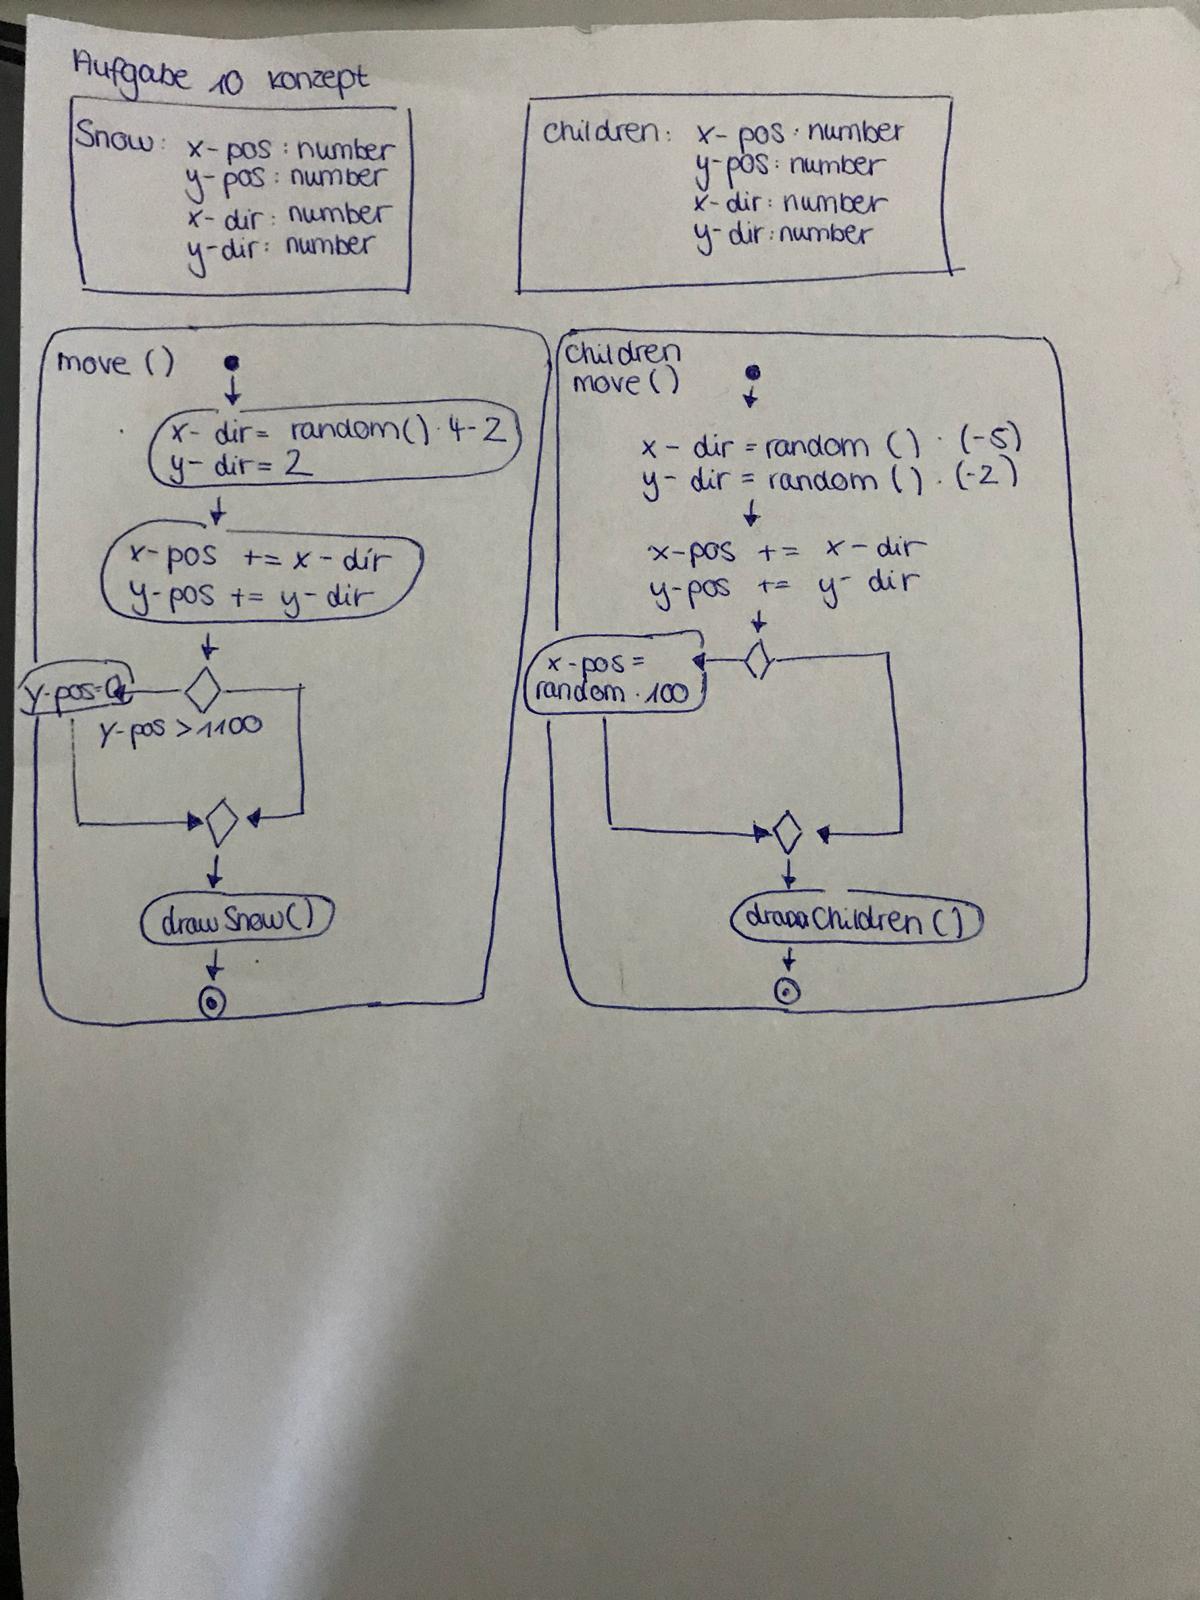 Aufgabe 10 konzept
Snow: x-pos : number
y-pos : number
x-dir : number
y-dir : number
children: x-pos : number
y-pos : number
x-dir : number
y-dir : number
move ()
x-dir = random() · 4-2
y-dir = 2
x-pos += x-dir
y-pos += y-dir
y-pos=0
y-pos > 1100
drawSnow()
children
move ()
x-dir = random () · (-5)
y-dir = random () · (-2)
x-pos += x-dir
y-pos += y-dir
x-pos =
random · 100
drawChildren ()